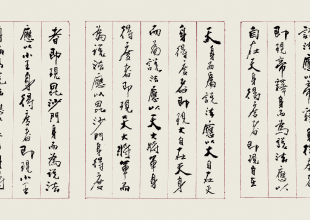 說法應以帝釋身得度者
即現帝釋身而為說法應以
自在天身得度者即現自在
天身而為說法應以大自在天
身得度者即現大自在天身
而為說法應以天大將軍身
得度者即現天大將軍身而
為說法應以毘沙門身得度
者即現毘沙門身而為說法
應以小王身得度者即現小王